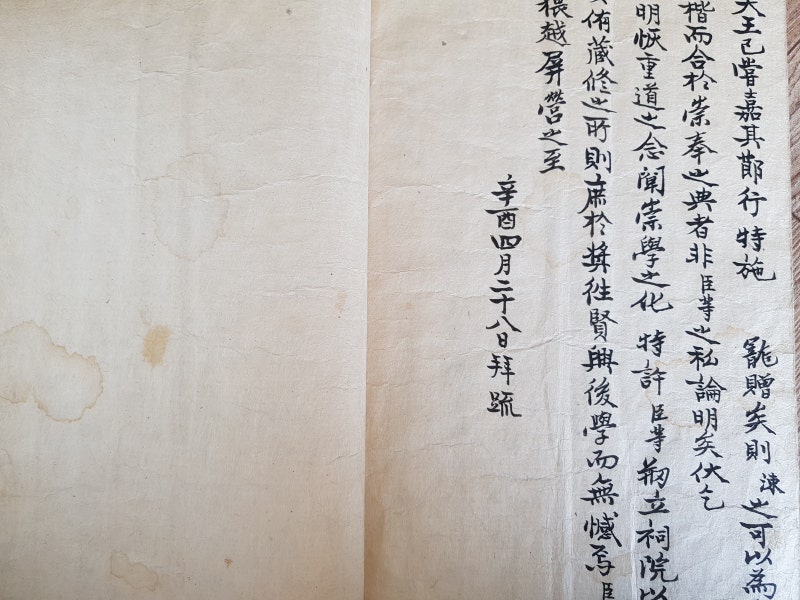 大王已嘗嘉其節行 特施 寵贈矣則 涑 之可以為
楷而合於崇奉之典者非臣等之私論明矣伏乞
明恢重道之念闡崇學之化 特許 臣等 刱立祠院以
侑藏修之所則庶於奬往賢興後學而無憾焉 臣
越屏營之至
辛酉四月二十八日拜疏